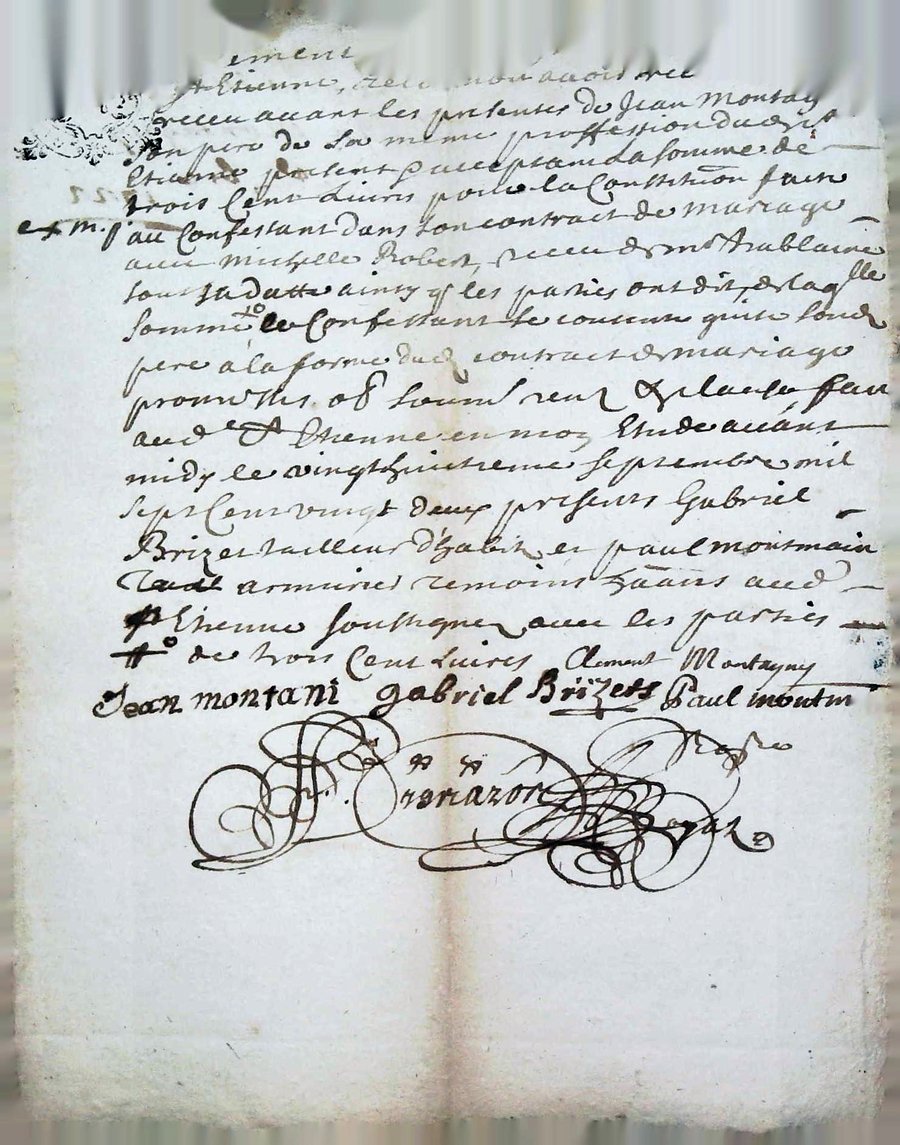 ement
St Etienne, avoir
receu avant les presentes de Jean Montag
son pere de sa meme proffession dud St
Etienne present & acceptant la somme de
trois Cent Livres pour la Constitution faite
au Confessant dans son contract de mariage
avec Michelle Robert, receu de me
sous sa datte ainsy q les parties ont dit, de laqlle
somme le Confessant se contente quite sond
pere à la forme dud contract de mariage
promettes ob soum renz & clause fait
aud St Etienne en moy Etude avant
midy le vingt huictieme septembre mil
sept Cent vingt deux presents Gabriel
Brizet tailleur d'habit et paul montmain
armurier temoins aud
St Etienne soussignez avec les parties
de trois Cent Livres Clement Montagny
Jean montani gabriel Brizets Paul moutin